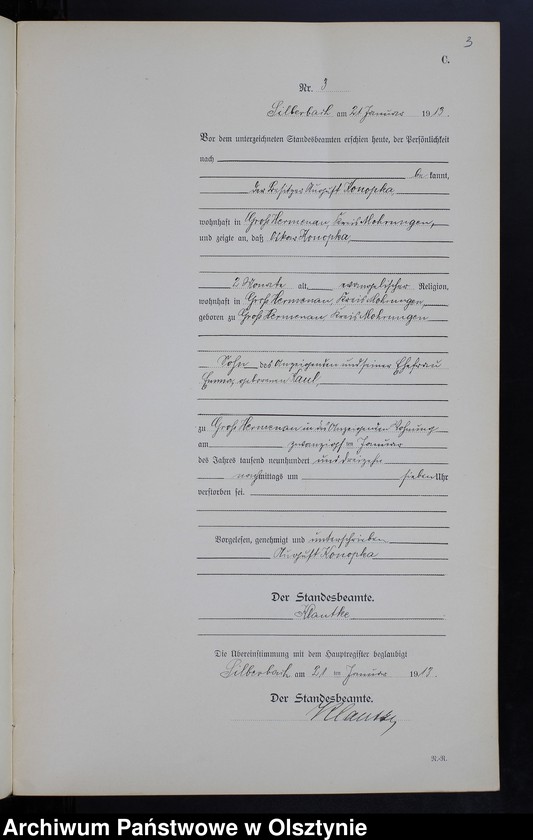 3
C.
Nr. 3
Silberbach am 21 Januar 1913.
Vor dem unterzeichneten Standesbeamten erschien heute, der Persönlichkeit
nach
be kannt,
der Besitzer August Konopka
wohnhaft in Groß Hermenau, Kreis Mohrungen,
und zeigte an, daß Oskar Konopka,
2 Monate alt, evangelischer Religion,
wohnhaft in Groß Hermenau, Kreis Mohrungen,
geboren zu Groß Hermenau, Kreis Mohrungen
Sohn des Anzeigenden und seiner Ehefrau
Emma, geborenen
zu Groß Hermenau in des Anzeigenden Wohnung
am zwanzigsten Januar
des Jahres tausend neunhundert und dreizehn
nachmittags um sieben Uhr
verstorben sei.
Vorgelesen, genehmigt und unterschrieben
August Konopka
Der Standesbeamte.
Klautke
Die Übereinstimmung mit dem Hauptregister beglaubigt
Silberbach am 21 ten Januar 1913.
Der Standesbeamte.
Klautke
Archiwum Państwowe w Olsztynie